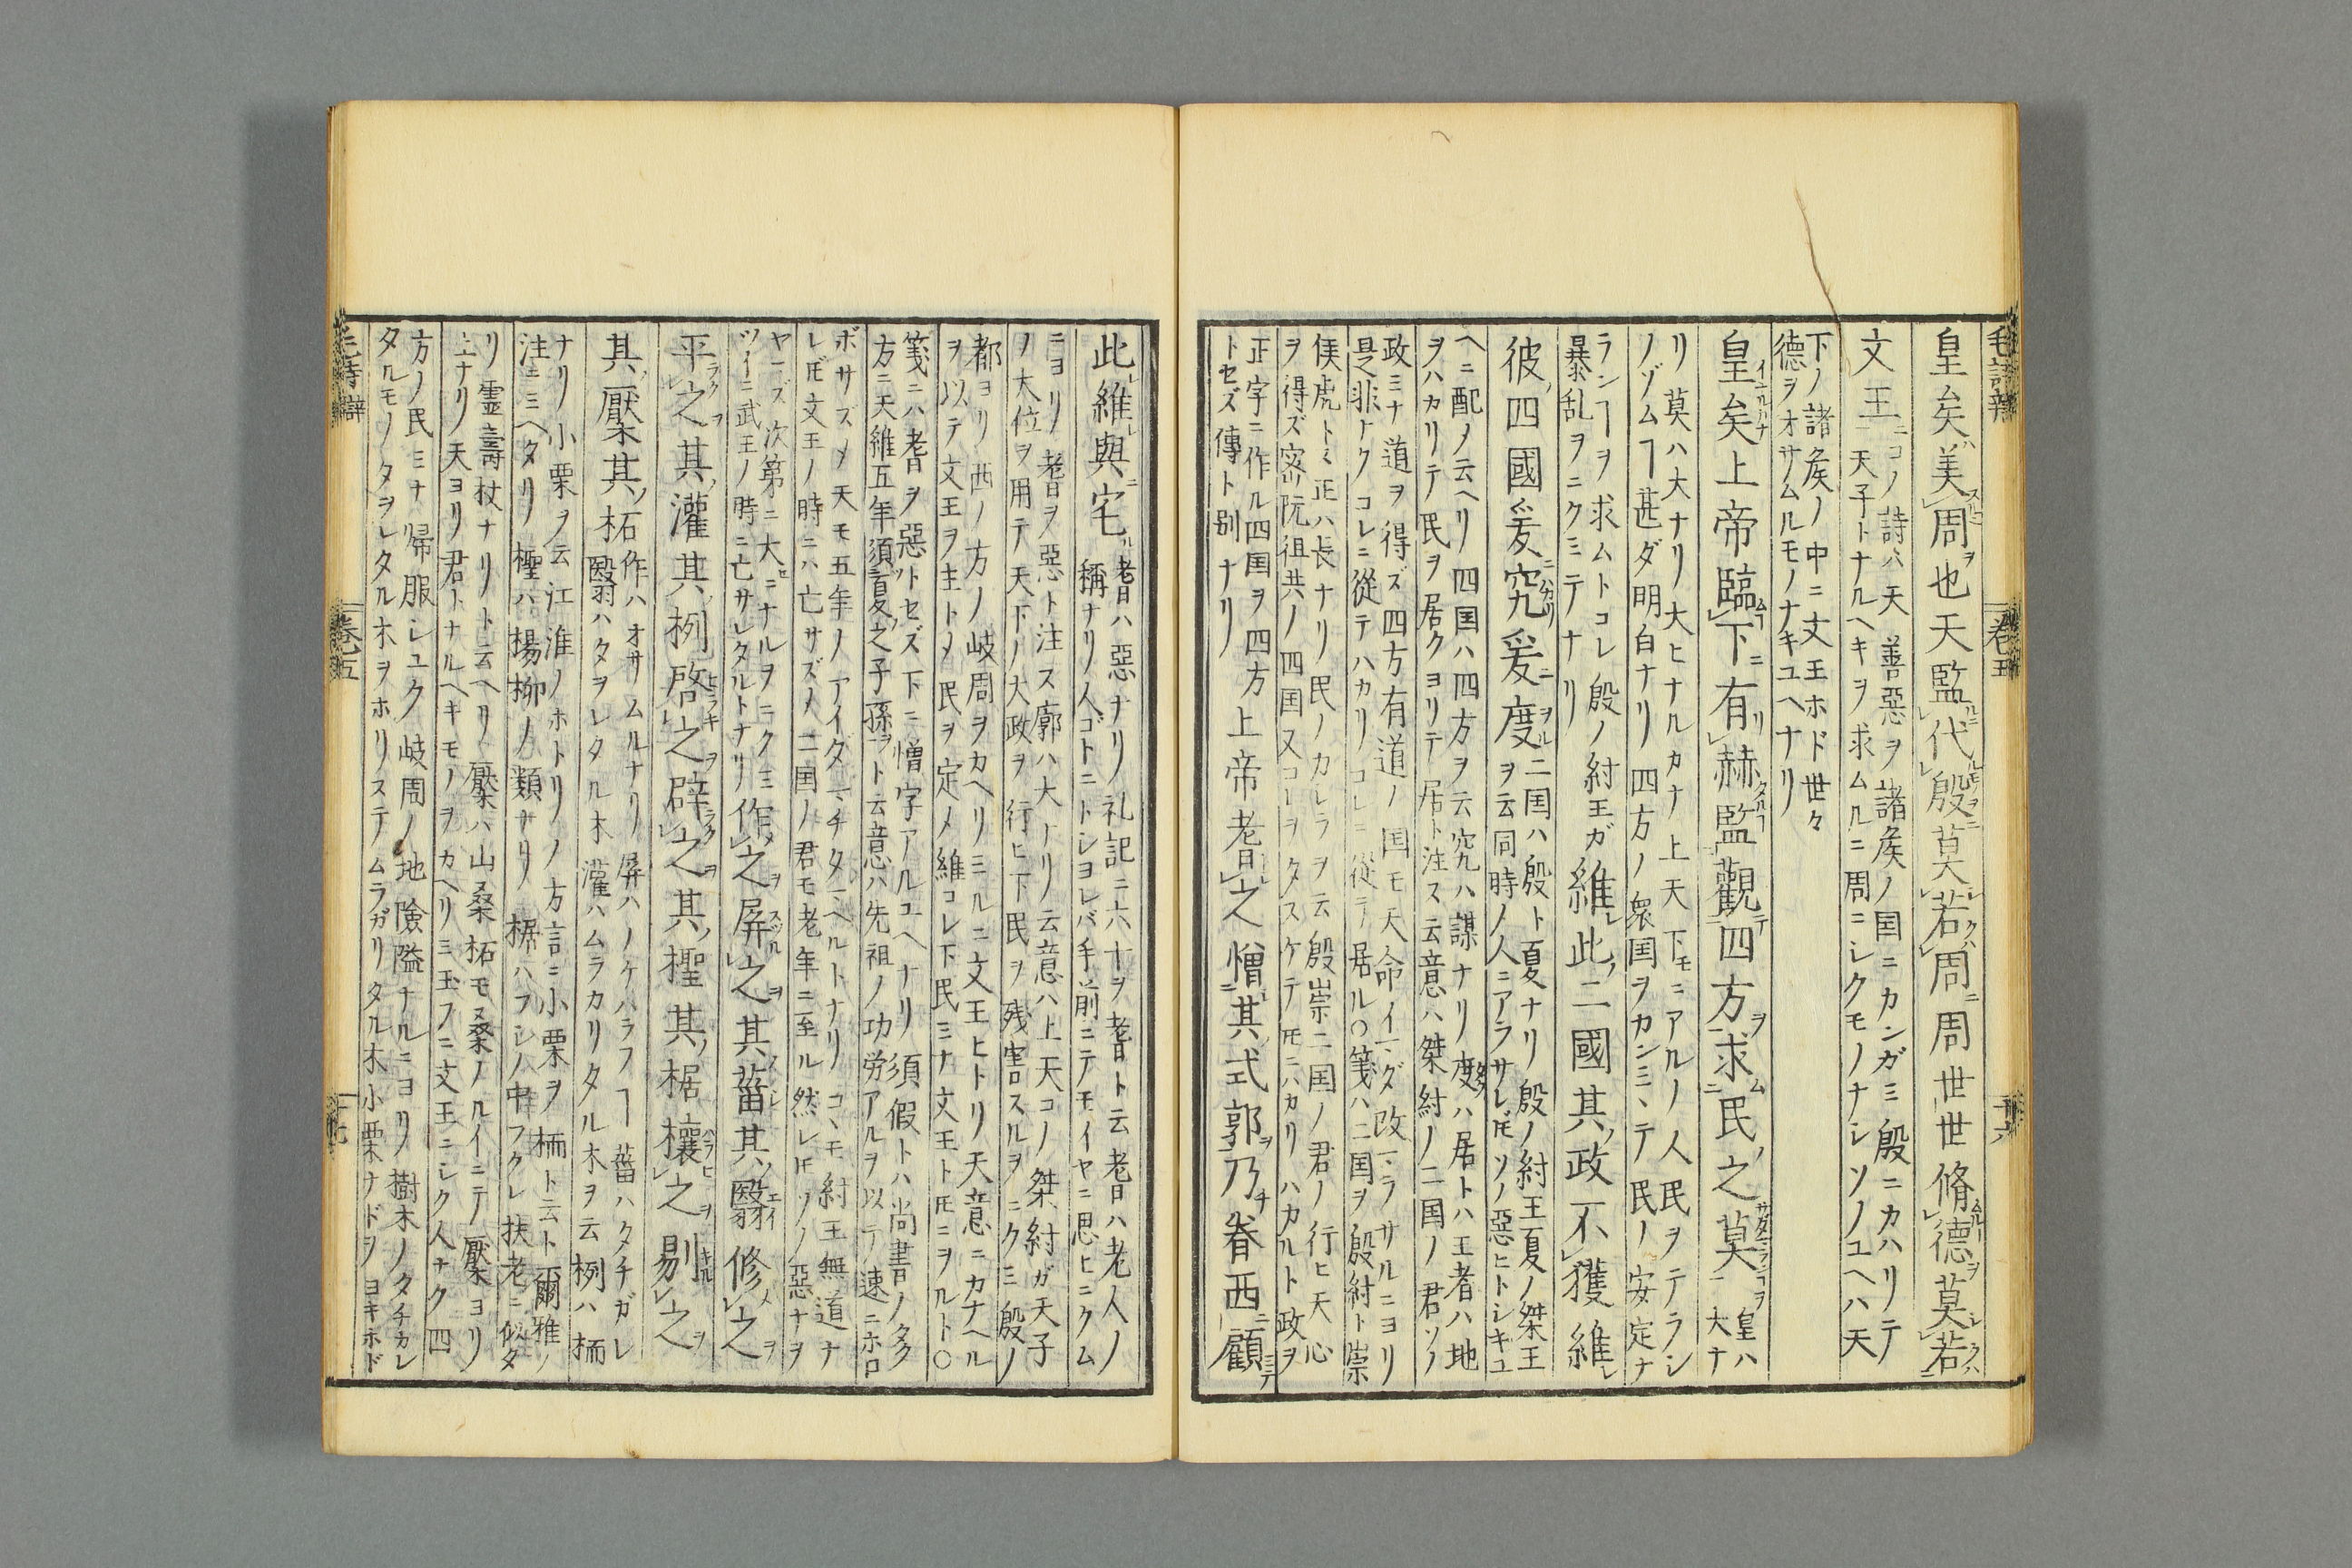 皇矣美周也天監代殷莫若周周世世脩德莫若
文王コノ詩ハ天善惡ヲ諸矦ノ国ニカンガミ殷ニカハリテ
天子トナルヘキヲ求ムルニ周ニシクモノナシソノユヘハ天
下ノ諸矦ノ中ニ文王ホド世々
德ヲオサムルモノナキユヘナリ
皇矣上帝臨下有赫監觀四方求民之莫皇ハ
大ナ
リ莫ハ大ナリ大ヒナルカナ上天下モニアルノ人民ヲテラシ
ノゾムヿ甚ダ明白ナリ四方ノ衆国ヲカンミテ民ノ安定ナ
ランヿヲ求ムトコレ殷ノ紂王ガ
暴乱ヲニクミテナリ
維此二國其政不獲維
彼四國爰究爰度二国ハ殷ト夏ナリ殷ノ紂王夏ノ桀王
ヲ云同時ノ人ニアラサレ𪜈ソノ惡ヒトシキユ
ヘニ配ノ云ヘリ四国ハ四方ヲ云究ハ謀ナリ度ハ居トハ王者ハ地
ヲハカリテ民ヲ居クヨリテ居ト注ス云意ハ桀紂ノ二国ノ君ソノ
政ミナ道ヲ得ズ四方有道ノ国モ天命イマダ改マラサルニヨリ
是非ナクコレニ從テハカリコレニ從テ居ル〇箋ハ二国ヲ殷紂ト崇
矦虎トシ正ハ長ナリ民ノカシラヲ云殷崇二国ノ君ノ行ヒ天心
ヲ得ズ密阮徂共ノ四国又コレヲタスケテ𪜈ニハカリハカルト政ヲ
正字ニ作ル四国ヲ四方
トセズ傳ト別ナリ
上帝耆之憎其式郭乃眷西顧
此維與宅耆ハ惡ナリ礼記ニ六十ヲ耆ト云耆ハ老人ノ
稱ナリ人ゴトニトシヨレバ手前ニテモイヤニ思ヒニクム
ニヨリ耆ヲ惡ト注ス廓ハ大ナリ云意ハ上天コノ桀紂ガ天子
ノ大位ヲ用テ天下ノ大政ヲ行ヒ下民ヲ残害スルヲニクミ殷ノ
都ヨリ西ノ方ノ岐周ヲカヘリミルニ文王ヒトリ天意ニカナヘル
ヲ以テ文王ヲ主トメ民ヲ定メ維コレ下民ミナ文王ト𪜈ニヲルト〇
箋ニハ耆ヲ惡トセズ下ニ憎字アルユヘナリ須假トハ尚書ノ多
方ニ天維五年須夏之子孫ヲト云意ハ先祖ノ功労アルヲ以テ速ニホロ
ボサズメ天モ五年ノアイダマチタマヘルトナリコヽモ紂王無道ナ
レ𪜈文王ノ時ニハ亡サズメ二国ノ君モ老年ニ至ル然レ𪜈ソノ惡ナヲ
ヤマズ次第ニ大ニナルヲニクミ
ツイニ武王ノ時ニ亡サレタルトナリ
作之屏之其菑其翳修之
平之其灌其栵啓之辟之其檉其椐攘之剔之
其檿其柘作ハオサムルナリ屏ハノケハラフヿ菑ハタチガレ
翳ハタヲレタル木灌ハムラカリタル木ヲ云栵ハ栭
ナリ小栗ヲ云江淮ノホトリノ方言ニ小栗ヲ栭ト云ト爾雅ノ
注ニミヘタリ檉ハ楊柳ノ類ナリ椐ハフシノ中フクレ扶老ニ似タ
リ霊壽杖ナリト云ヘリ檿ハ山桑柘モ桑ノルイニテ檿ヨリ
上ナリ天ヨリ君トナルヘキモノヲカヘリミ玉フニ文王ニシク人ナク四
方ノ民ミナ帰服シユク岐周ノ地險隘ナルニヨリ樹木ノタチカレ
タルモノタヲレタル木ヲホリステムラガリタル木小栗ナドヲヨキホド
毛詩辯 卷五 十六
毛詩辯 卷五 十七